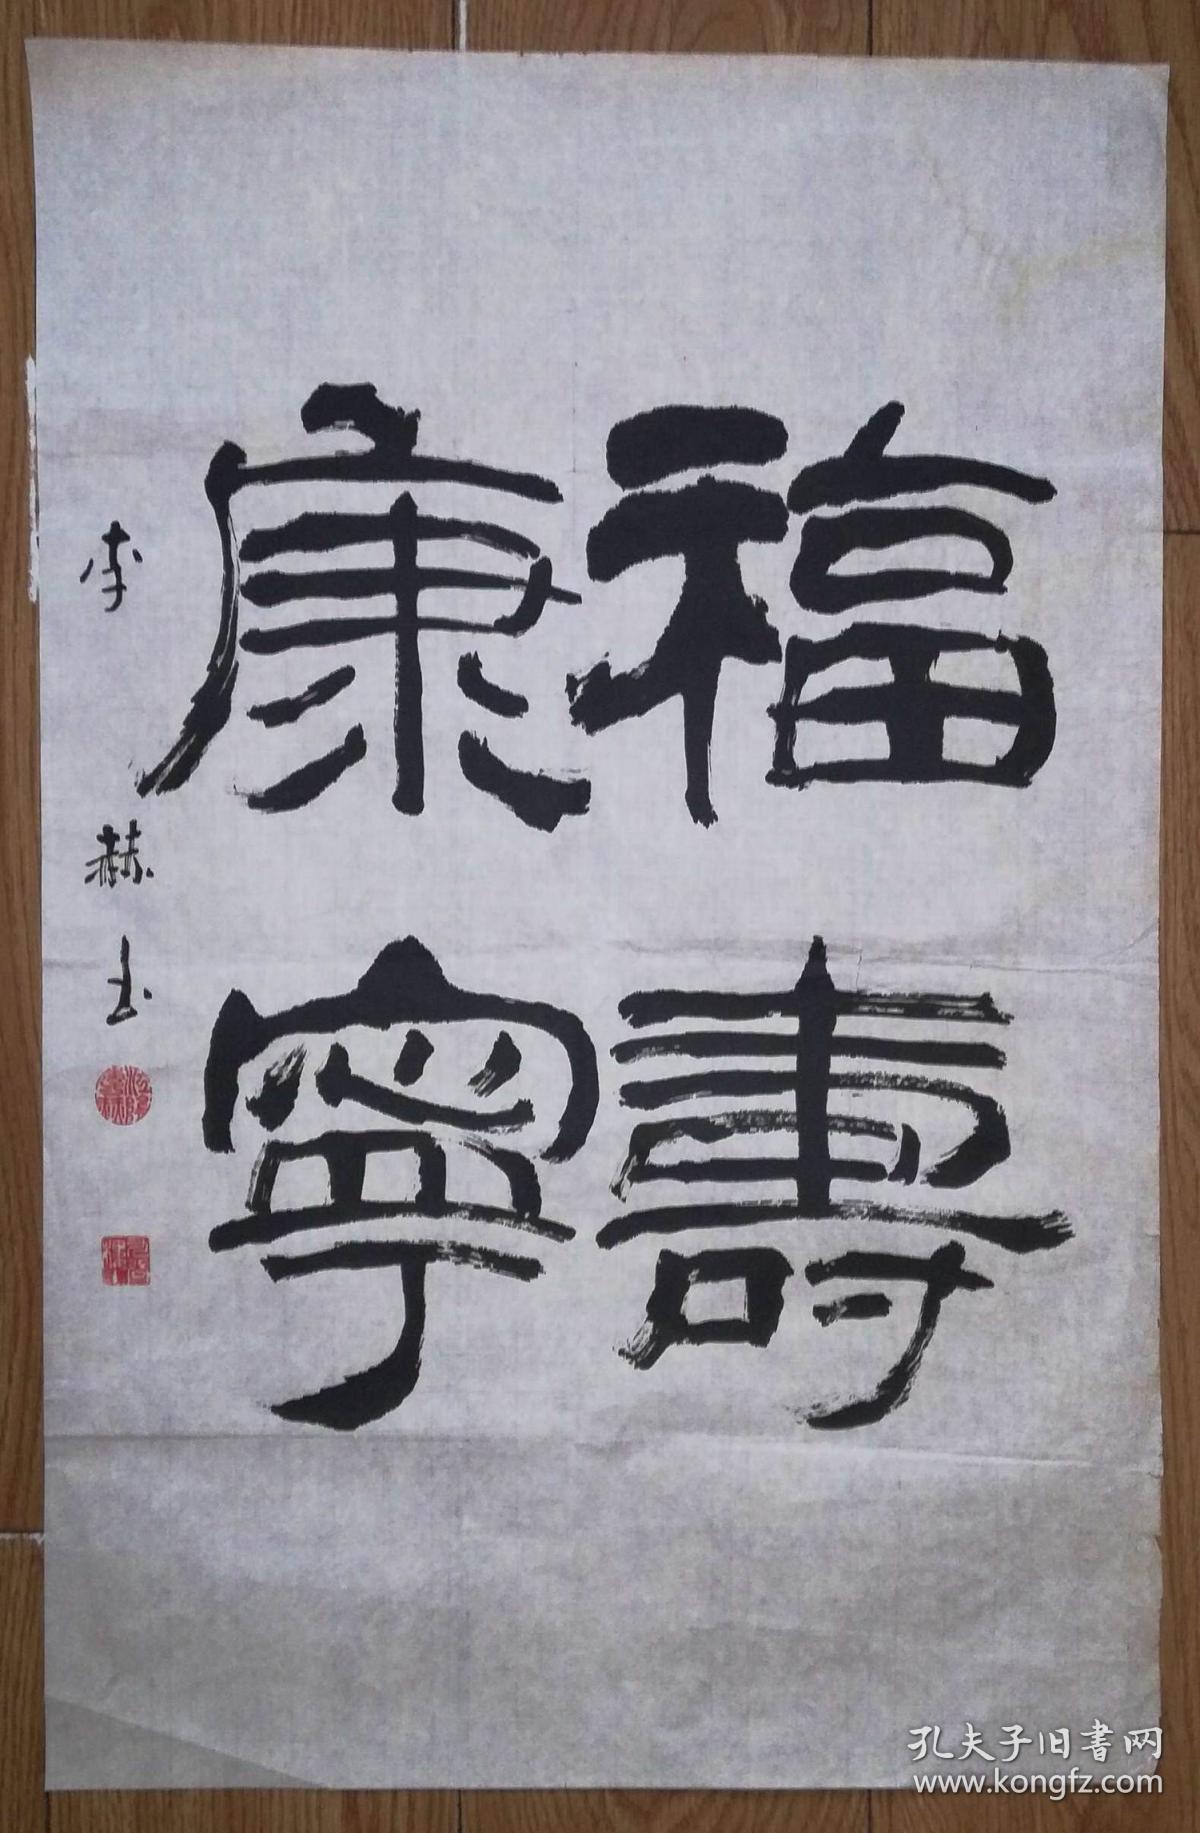 福壽
康寧
李赫玉
孔夫子旧书网
www.kongfz.com